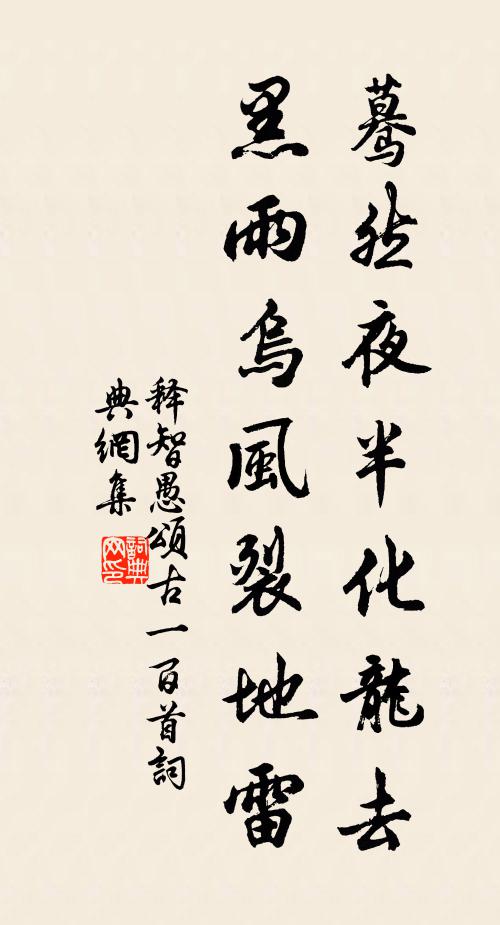 驀然夜半化龍去
黑雨烏風裂地雷
释智愚頌古一百首詞
典網集
詞典
网印